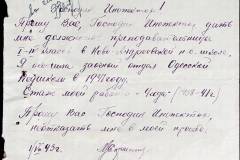 Господин Инспектор!
Прошу Вас, Господин Инспектор, дать
мне должность преподавательницы
I-IV класс. в Ново-Андреевской н. школе.
Я окончила заочный отдел Одесской
Педшколы в 1941 году.
Стаж моей работы - 4 года (1938-41г.
Прошу Вас Господин Инспектор,
не отказать мне в моей просьбе.